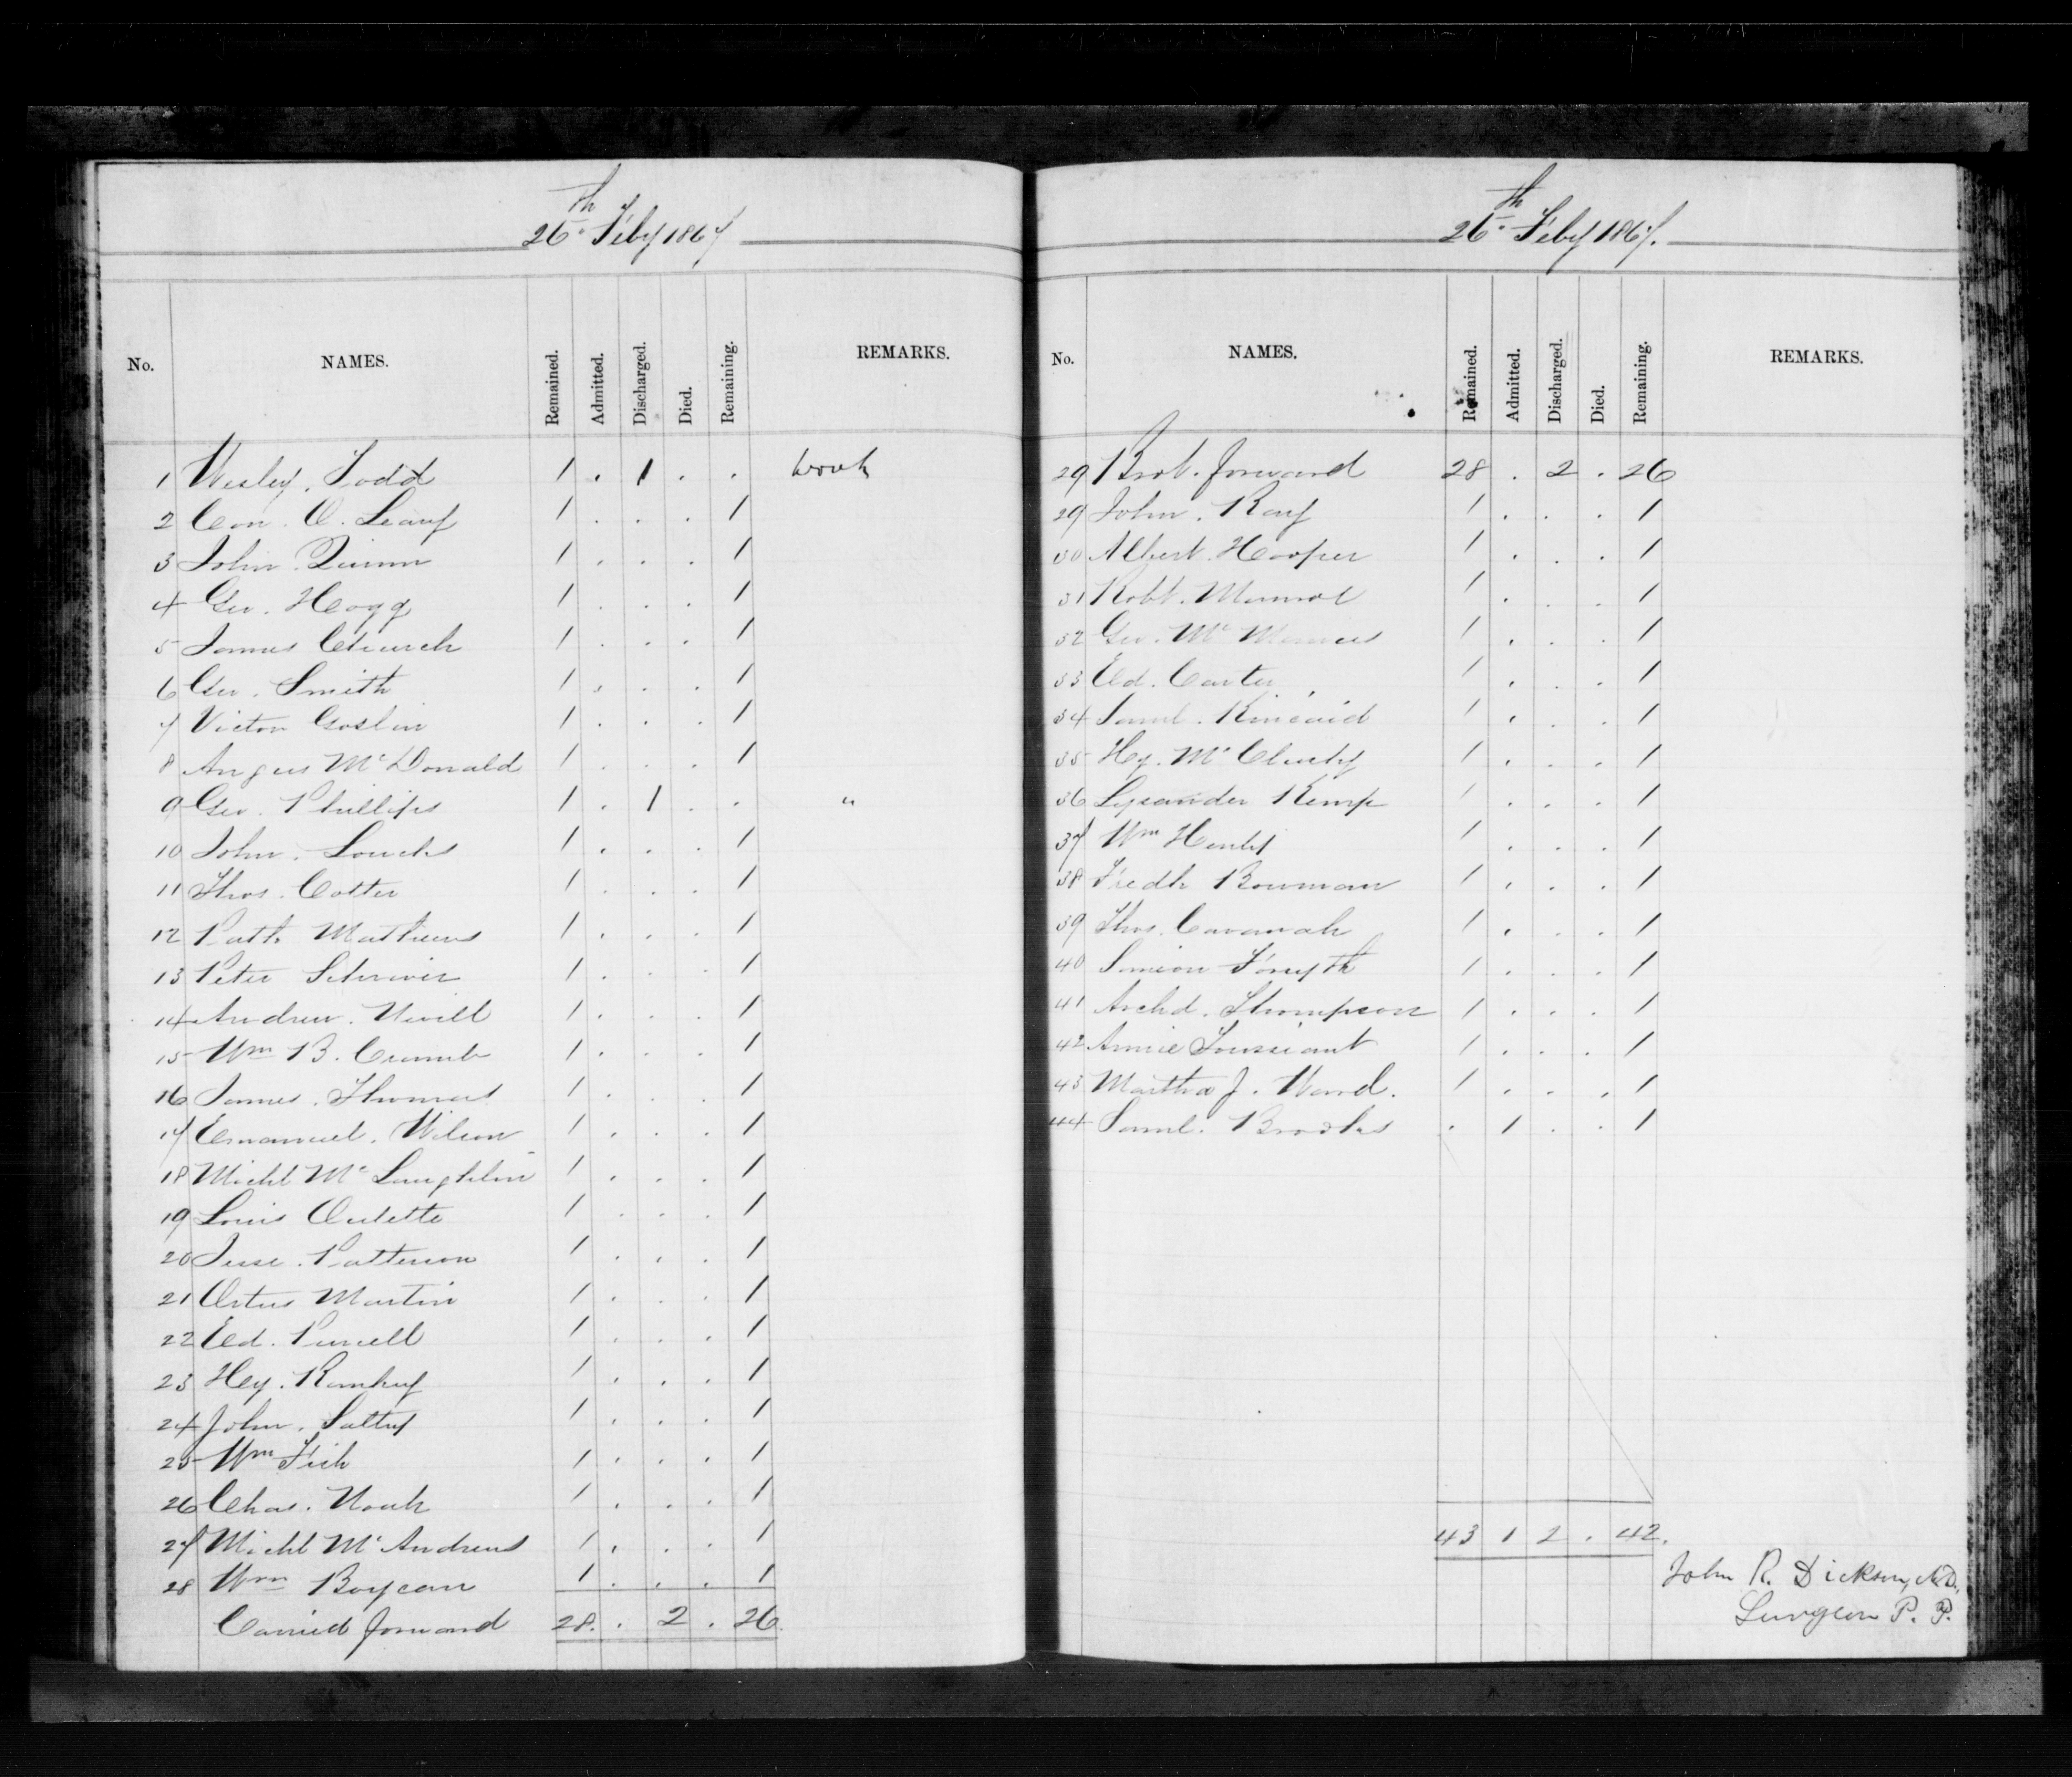 26th Feby 1867
No. NAMES. Remained. Admitted. Discharged. Died. Remaining. REMARKS.
1 Wesley. Todd 1 . 1 . . work
2 Con. O. Leary 1 . . . 1
3 John. Quinn 1 . . . 1
4 Geo. Hogg 1 . . . 1
5 James Church 1 . . . 1
6 Geo. Smith 1 . . . 1
7 Victor Goslin 1 . . . 1
8 Angus McDonald 1 . . . 1
9 Geo. Phillips 1 . 1 . . "
10 John. Loucks 1 . . . 1
11 Thos. Cotter 1 . . . 1
12 Patk Mathews 1 . . . 1
13 Peter Schriver 1 . . . 1
14 Andrew. Nevill 1 . . . 1
15 Wm B. Crumb 1 . . . 1
16 James. Thomas 1 . . . 1
17 Emanuel. Wilson 1 . . . 1
18 Michl McLaughlin 1 . . . 1
19 Louis Oulette 1 . . . 1
20 Jesse. Patterson 1 . . . 1
21 Martin 1 . . . 1
22 Ed. Purcell 1 . . . 1
23 Hy. 1 . . . 1
24 John. 1 . . . 1
25 Wm 1 . . . 1
26 Chas. 1 . . . 1
27 Michl McAndrews 1 . . . 1
28 Wm 1 . . . 1
Carried forward 28 . 2 . 26
26th Feby 1867.
No. NAMES. Remained. Admitted. Discharged. Died. Remaining. REMARKS.
29 Brot. forward 28 . 2 . 26
29 John. Ray 1 . . . 1
30 Albert. Hooper 1 . . . 1
31 Robt. Munroe 1 . . . 1
32 Geo. McManus 1 . . . 1
33 Ed. Carter 1 . . . 1
34 Saml. Kincaid 1 . . . 1
35 Hy. McClusky 1 . . . 1
36 Lysander Kemp 1 . . . 1
37 Wm Henly 1 . . . 1
38 Fredk Bowman 1 . . . 1
39 Thos. Cavanah 1 . . . 1
40 Simeon Forsyth 1 . . . 1
41 Archd. Thompson 1 . . . 1
42 Annie Toussiant 1 . . . 1
43 Martha J. Ward. 1 . . . 1
44 Saml. Brooks . 1 . . 1
43 1 2 . 42.
John R. Dickson, M.D.,
Surgeon P. P.